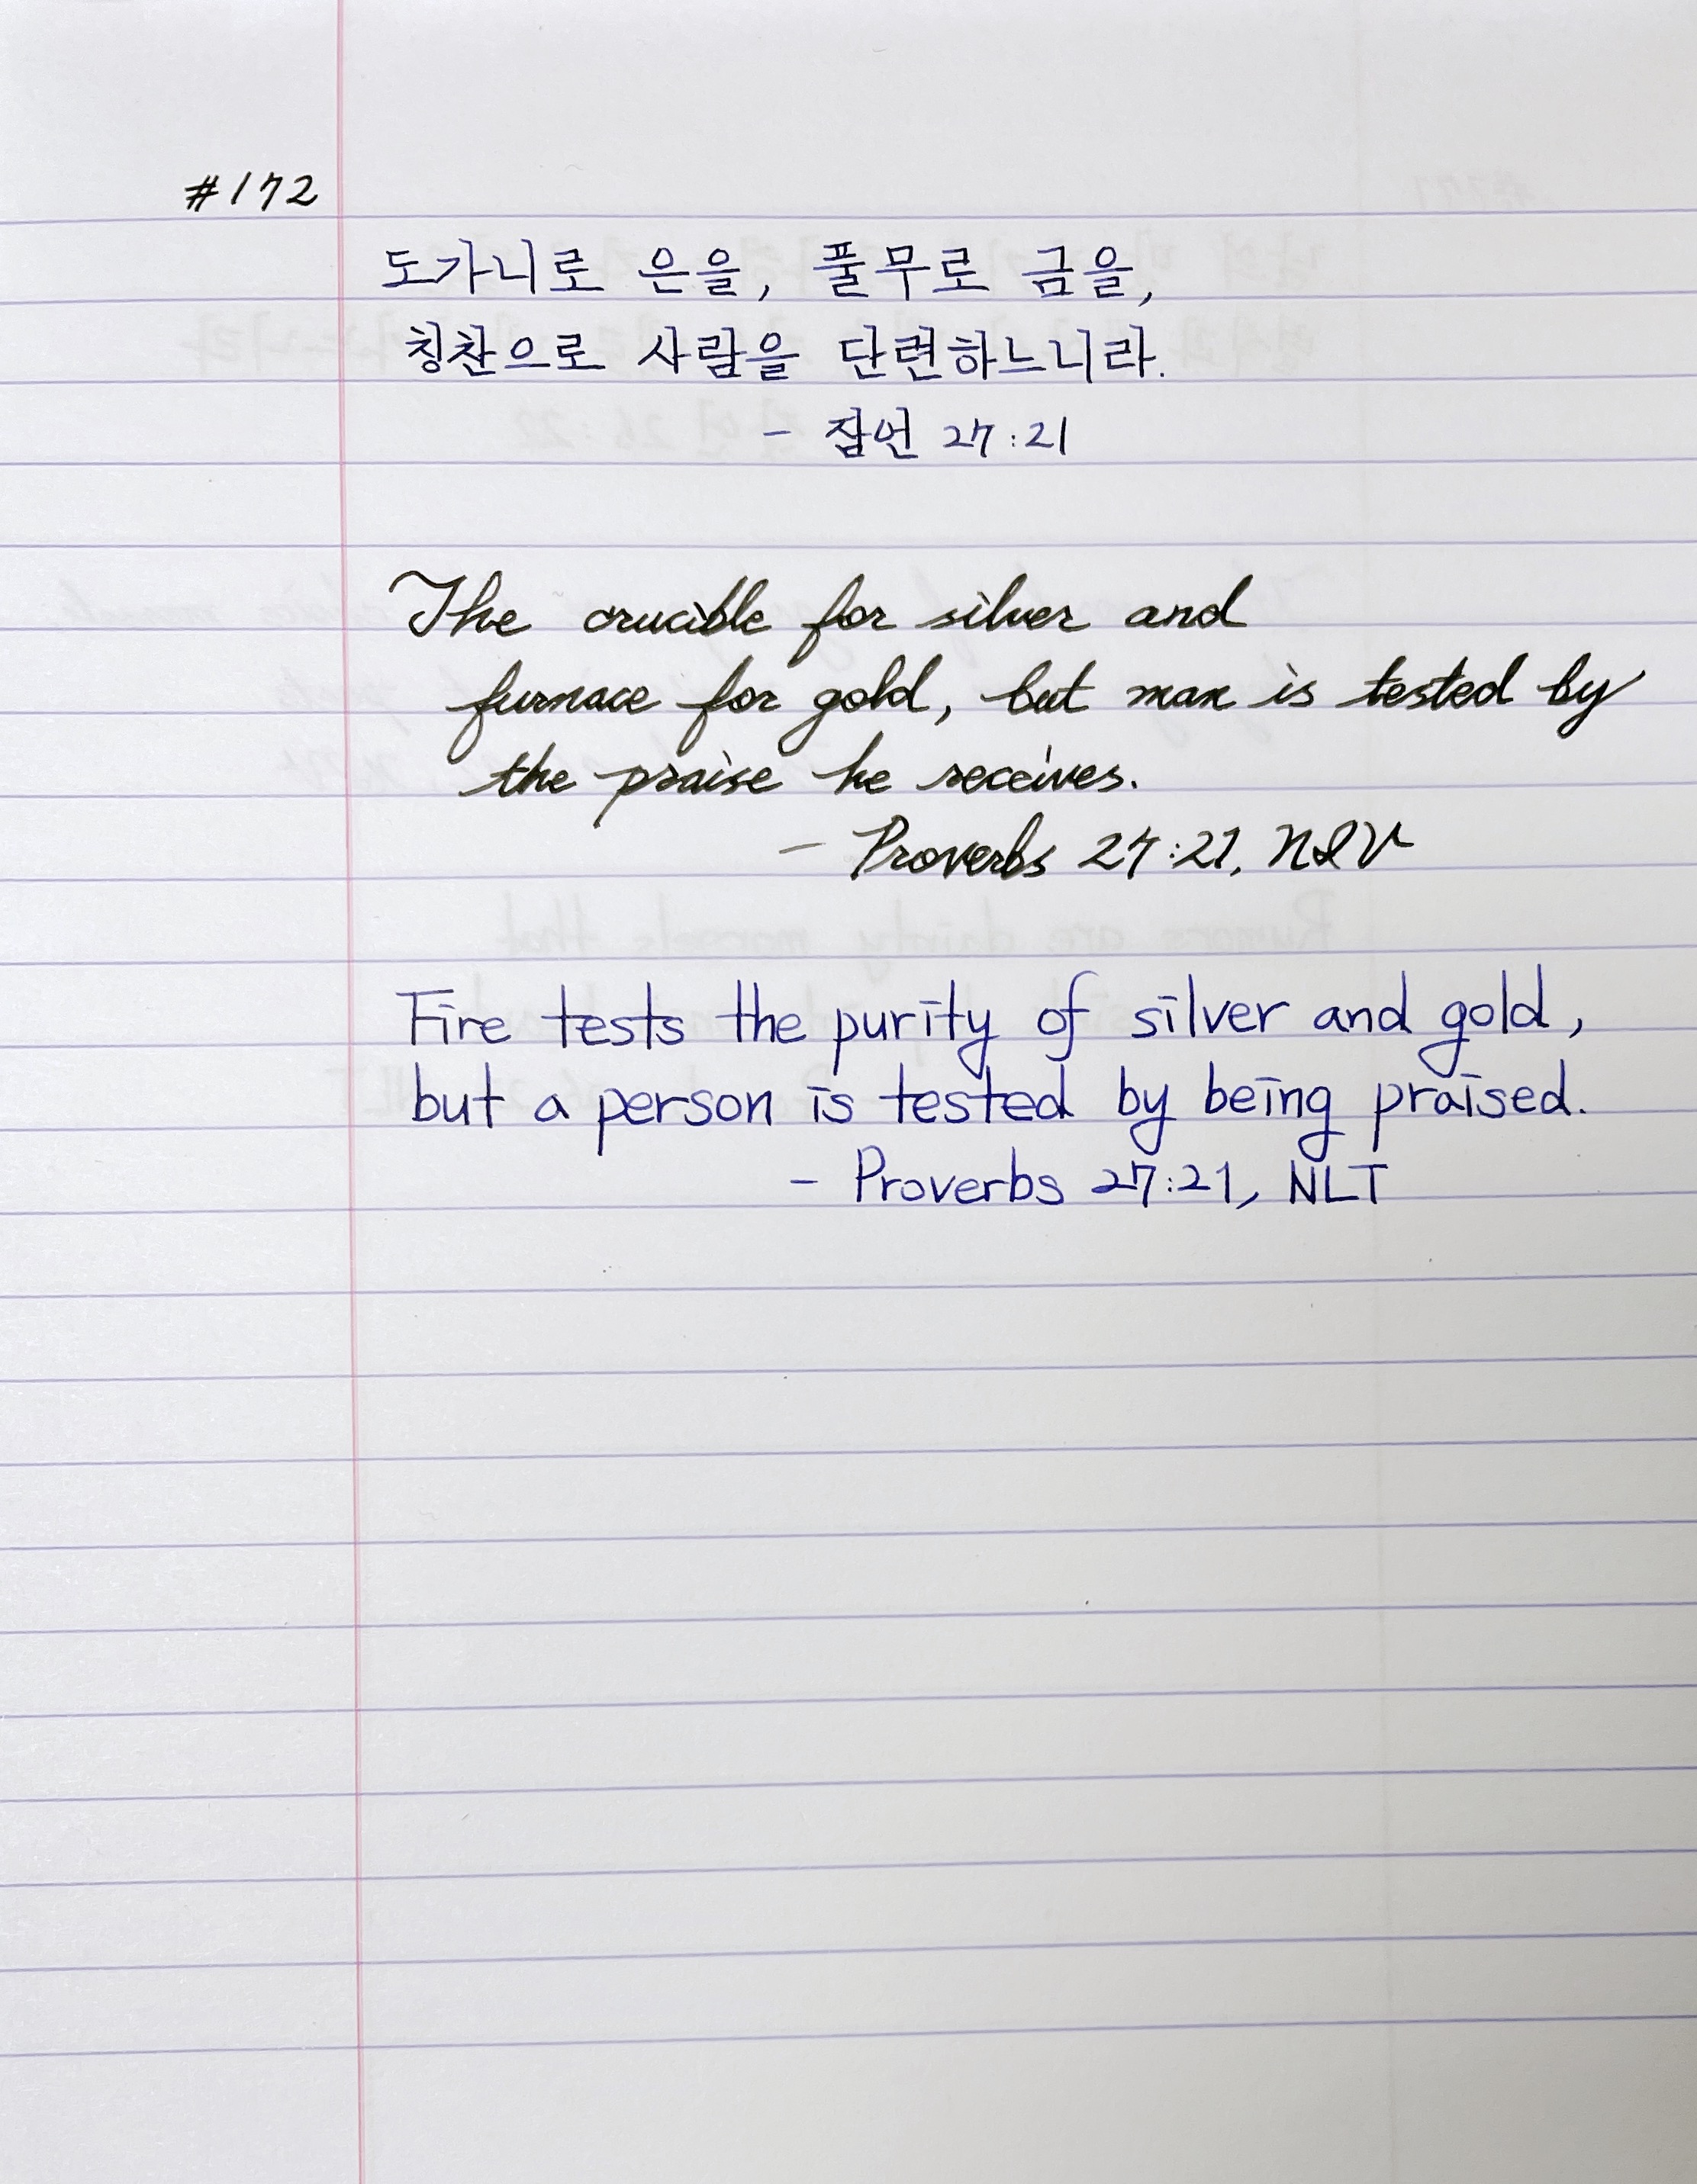 #172
도가니로 은을, 풀무로 금을,
칭찬으로 사람을 단련하느니라.
- 잠언 27:21
The crucible for silver and
furnace for gold, but man is tested by
the praise he receives.
- Proverbs 27:21, NIV
Fire tests the purity of silver and gold,
but a person is tested by being praised.
- Proverbs 27:21, NLT